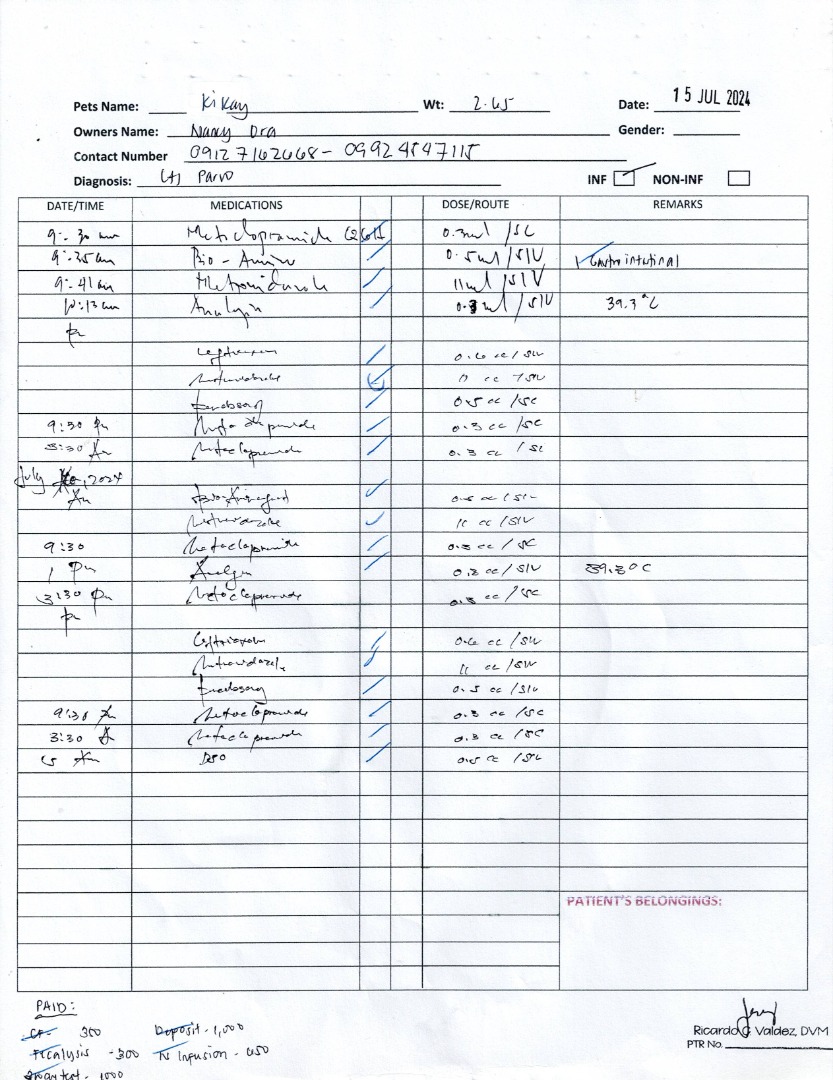 Pets Name: Kikay Wt: 2.65 Date: 15 JUL 2024
Owners Name: Nancy Ora Gender:
Contact Number 09127162668 - 09924847115
Diagnosis: (+) Parvo INF NON-INF
DATE/TIME MEDICATIONS DOSE/ROUTE REMARKS
9:30 am Metoclopramide 0.3ml /SC
9:35 am Bio-Amino 0.5ml /SIV Gastrointestinal
9:41 am Metronidazole 11ml /SIV
10:13 am Analgin 0.3ml /SIV 39.3°C
pm
Ceftriaxon 0.6 cc /SIV
11 cc /SIV
0.5 cc /SC
9:30 pm 0.3 cc /SC
3:30 Am Metoclopramide 0.3 cc /SC
July 2024
Am
11 cc /SIV
9:30 Metoclopramide 0.3 cc /SC
1 pm Analgin 0.3 cc /SIV 39.3°C
3:30 pm Metoclopramide 0.3 cc /SC
pm
Ceftriaxon 0.6 cc /SIV
Metronidazole 11 cc /SIV
0.5 cc /SIV
9:30 pm Metoclopramide 0.3 cc /SC
3:30 A Metoclopramide 0.3 cc /SC
Am
PATIENT'S BELONGINGS:
PAID:
CF- 350 Deposit - 1,000
Fecalysis - 300 IV Infusion - 650
test - 1000
Ricardo G. Valdez, DVM
PTR No.